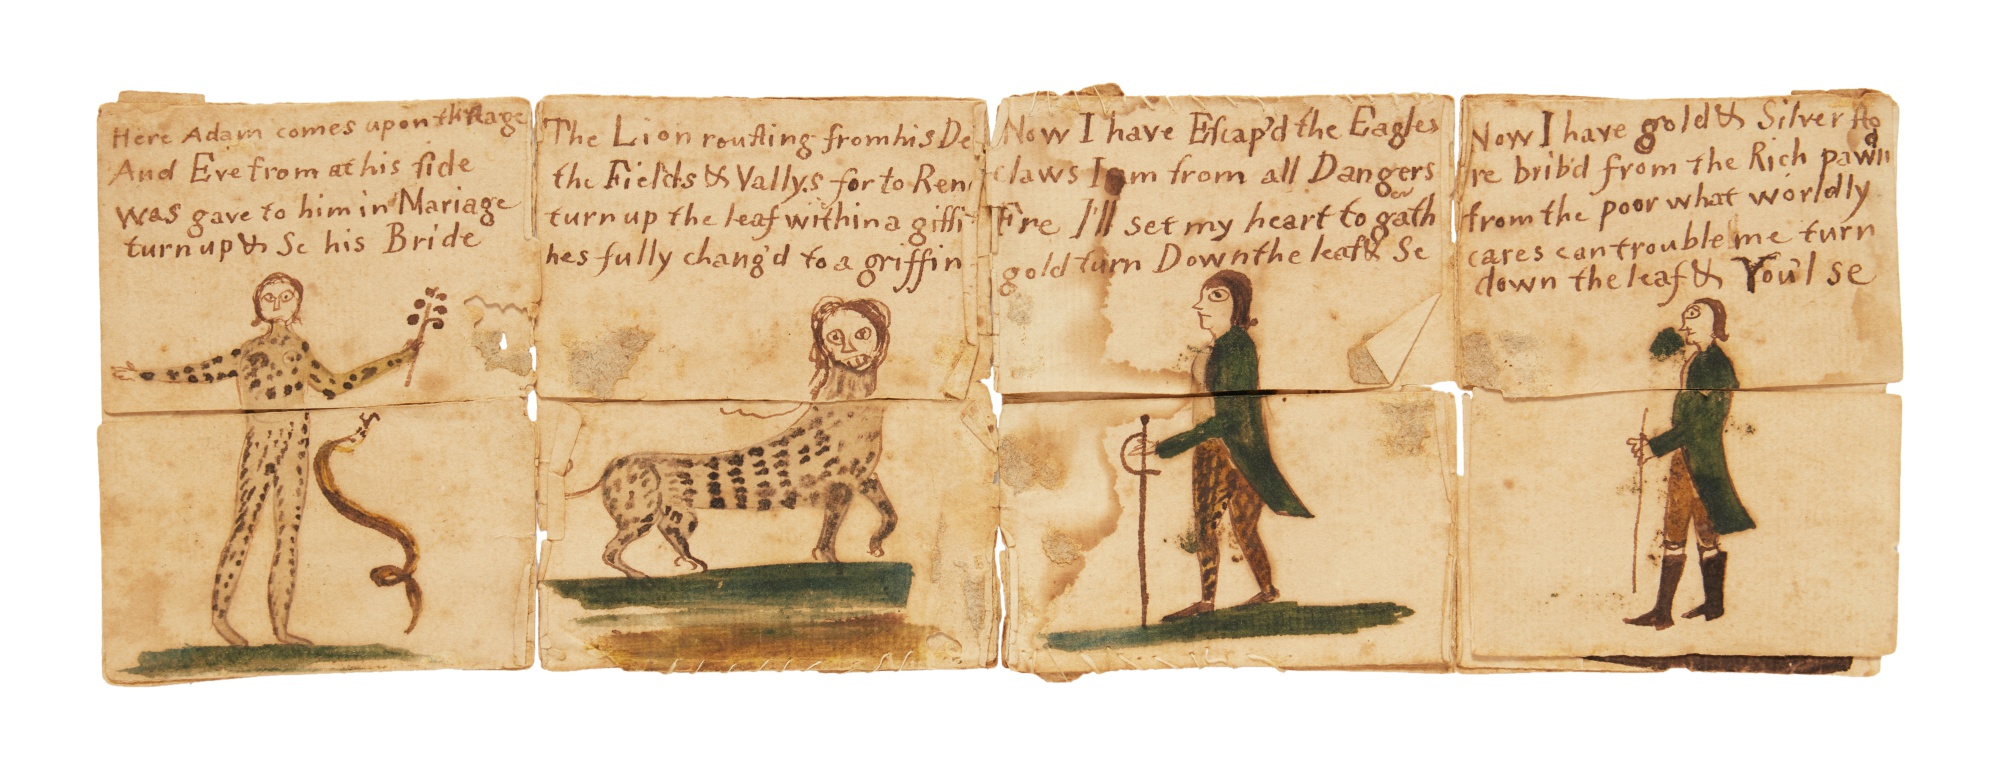 Here Adam comes upon the stage
And Eve from at his side
was gave to him in Mariage
turn up & Se his Bride
The Lion rousting from his De
the Fields & Vallys for to Ren
turn up the leaf within a giffi
hes fully chang'd to a griffin
Now I have Escap'd the Eagles
claws I am from all Dangers
Fre I'll set my heart to gath er
gold turn Down the leaf & Se
Now I have gold & Silver
re brib'd from the Rich pawn
from the poor what worldly
cares can trouble me turn
down the leaf & You'l se